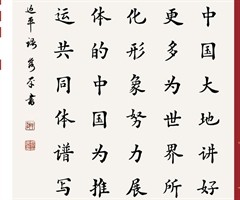 中国大地讲好
更多为世界所
化形象努力展
体的中国为推
运共同体谱写
近平语 书